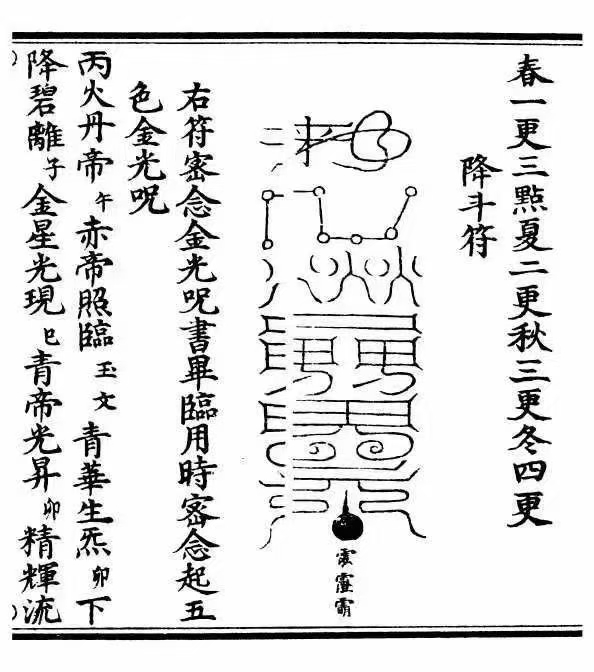 春一更三點夏二更秋三更冬四更
降斗符
右符密念金光呪書畢臨用時密念起五
色金光呪
丙火丹帝午赤帝照臨玉文青華生炁卯下
降碧離子金星光現巳青帝光昇卯精輝流